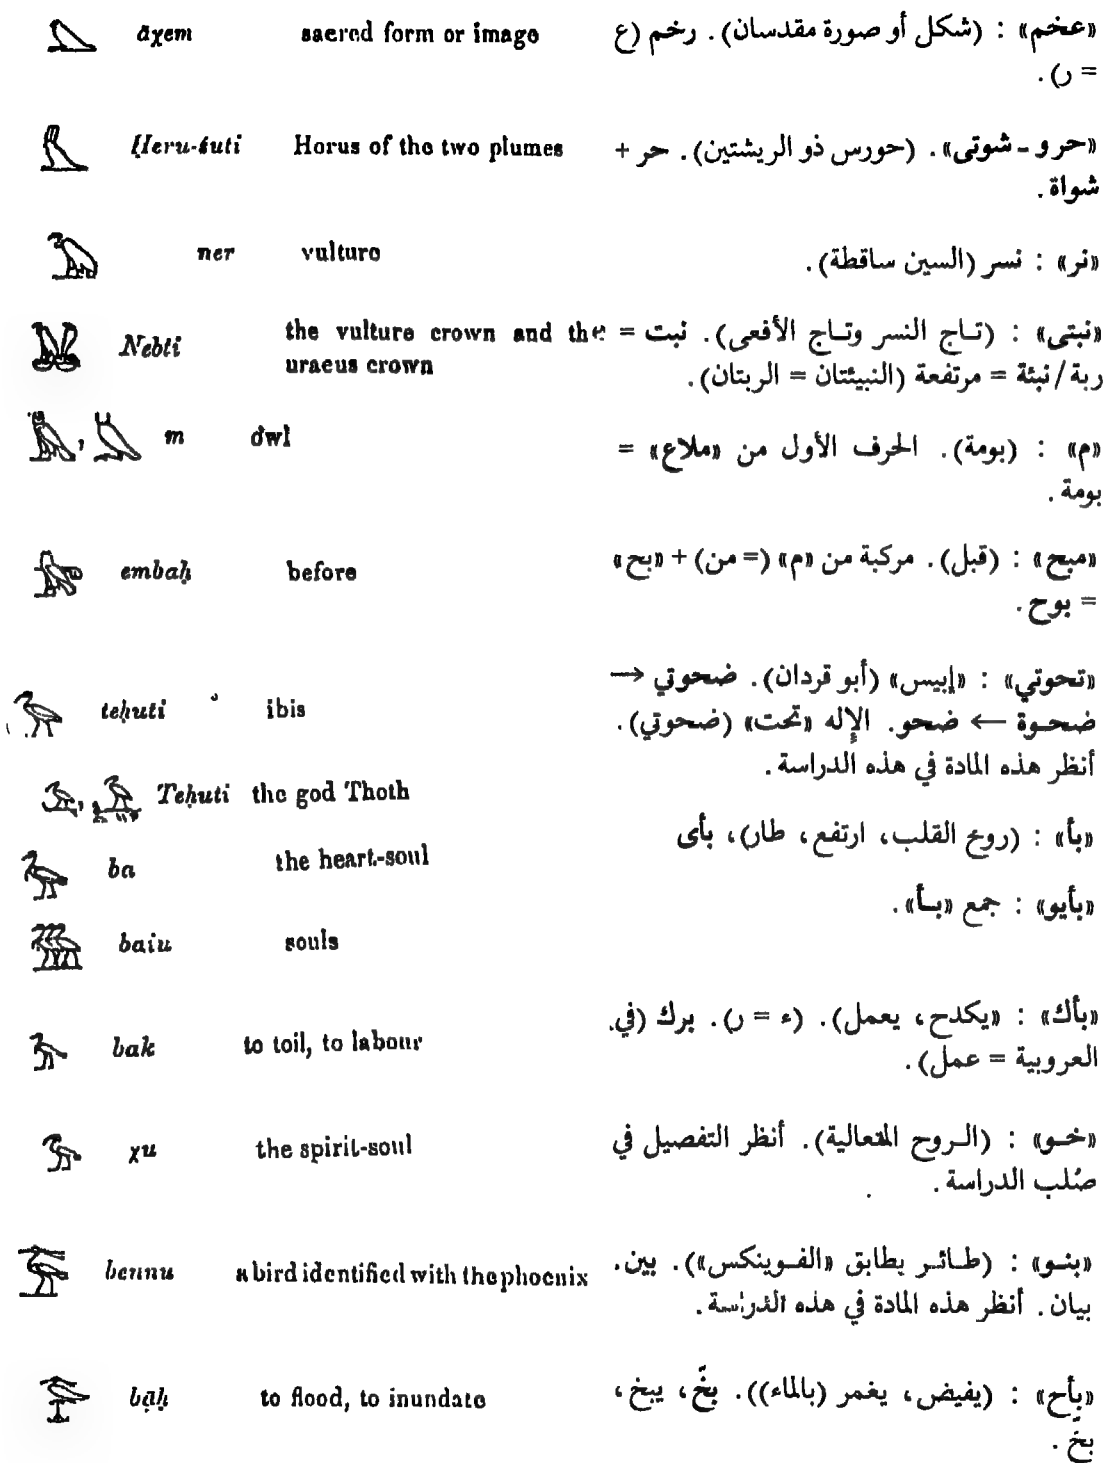 āχem sacred form or image «عخم» : (شكل أو صورة مقدسان). رخم (ع
= ر).
Ḥeru-śuti Horus of the two plumes «حرو - شوتى». (حورس ذو الريشتين). حر +
شواة.
ner vulture «نر» : نسر (السين ساقطة).
Nebti the vulture crown and the «نبتى» : (تاج النسر وتاج الأفعى). نبت =
uraeus crown ربة/نبئة = مرتفعة (النبيئتان = الربتان).
m owl «م» : (بومة). الحرف الأول من «ملاع» =
بومة.
embaḥ before «مبح» : (قبل). مركبة من «م» (= من) + «بح»
= بوح.
teḥuti ibis «تحوتي» : «إبيس» (أبو قردان). ضحوتي →
ضحوة ← ضحو. الإله «تحت» (ضحوتي).
أنظر هذه المادة في هذه الدراسة.
Teḥuti the god Thoth
ba the heart-soul «بأ» : (روح القلب، ارتفع، طار)، بأى
«بأيو» : جمع «بأ».
baiu souls
bak to toil, to labour «بأك» : «يكدح، يعمل). (ء = ر). برك (في
العروبية = عمل).
χu the spirit-soul «خو» : (الروح المتعالية). أنظر التفصيل في
صُلب الدراسة.
bennu a bird identified with the phoenix «بنو» : (طائر يطابق «الفوينكس»). بين.
بيان. أنظر هذه المادة في هذه الدراسة.
bạḥ to flood, to inundate «بأح» : (يفيض، يغمر (بالماء)). بخّ، يبخ،
بخّ.